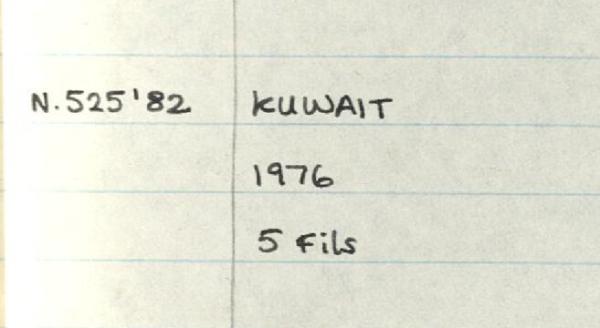 N.525'82 KUWAIT
1976
5 Fils